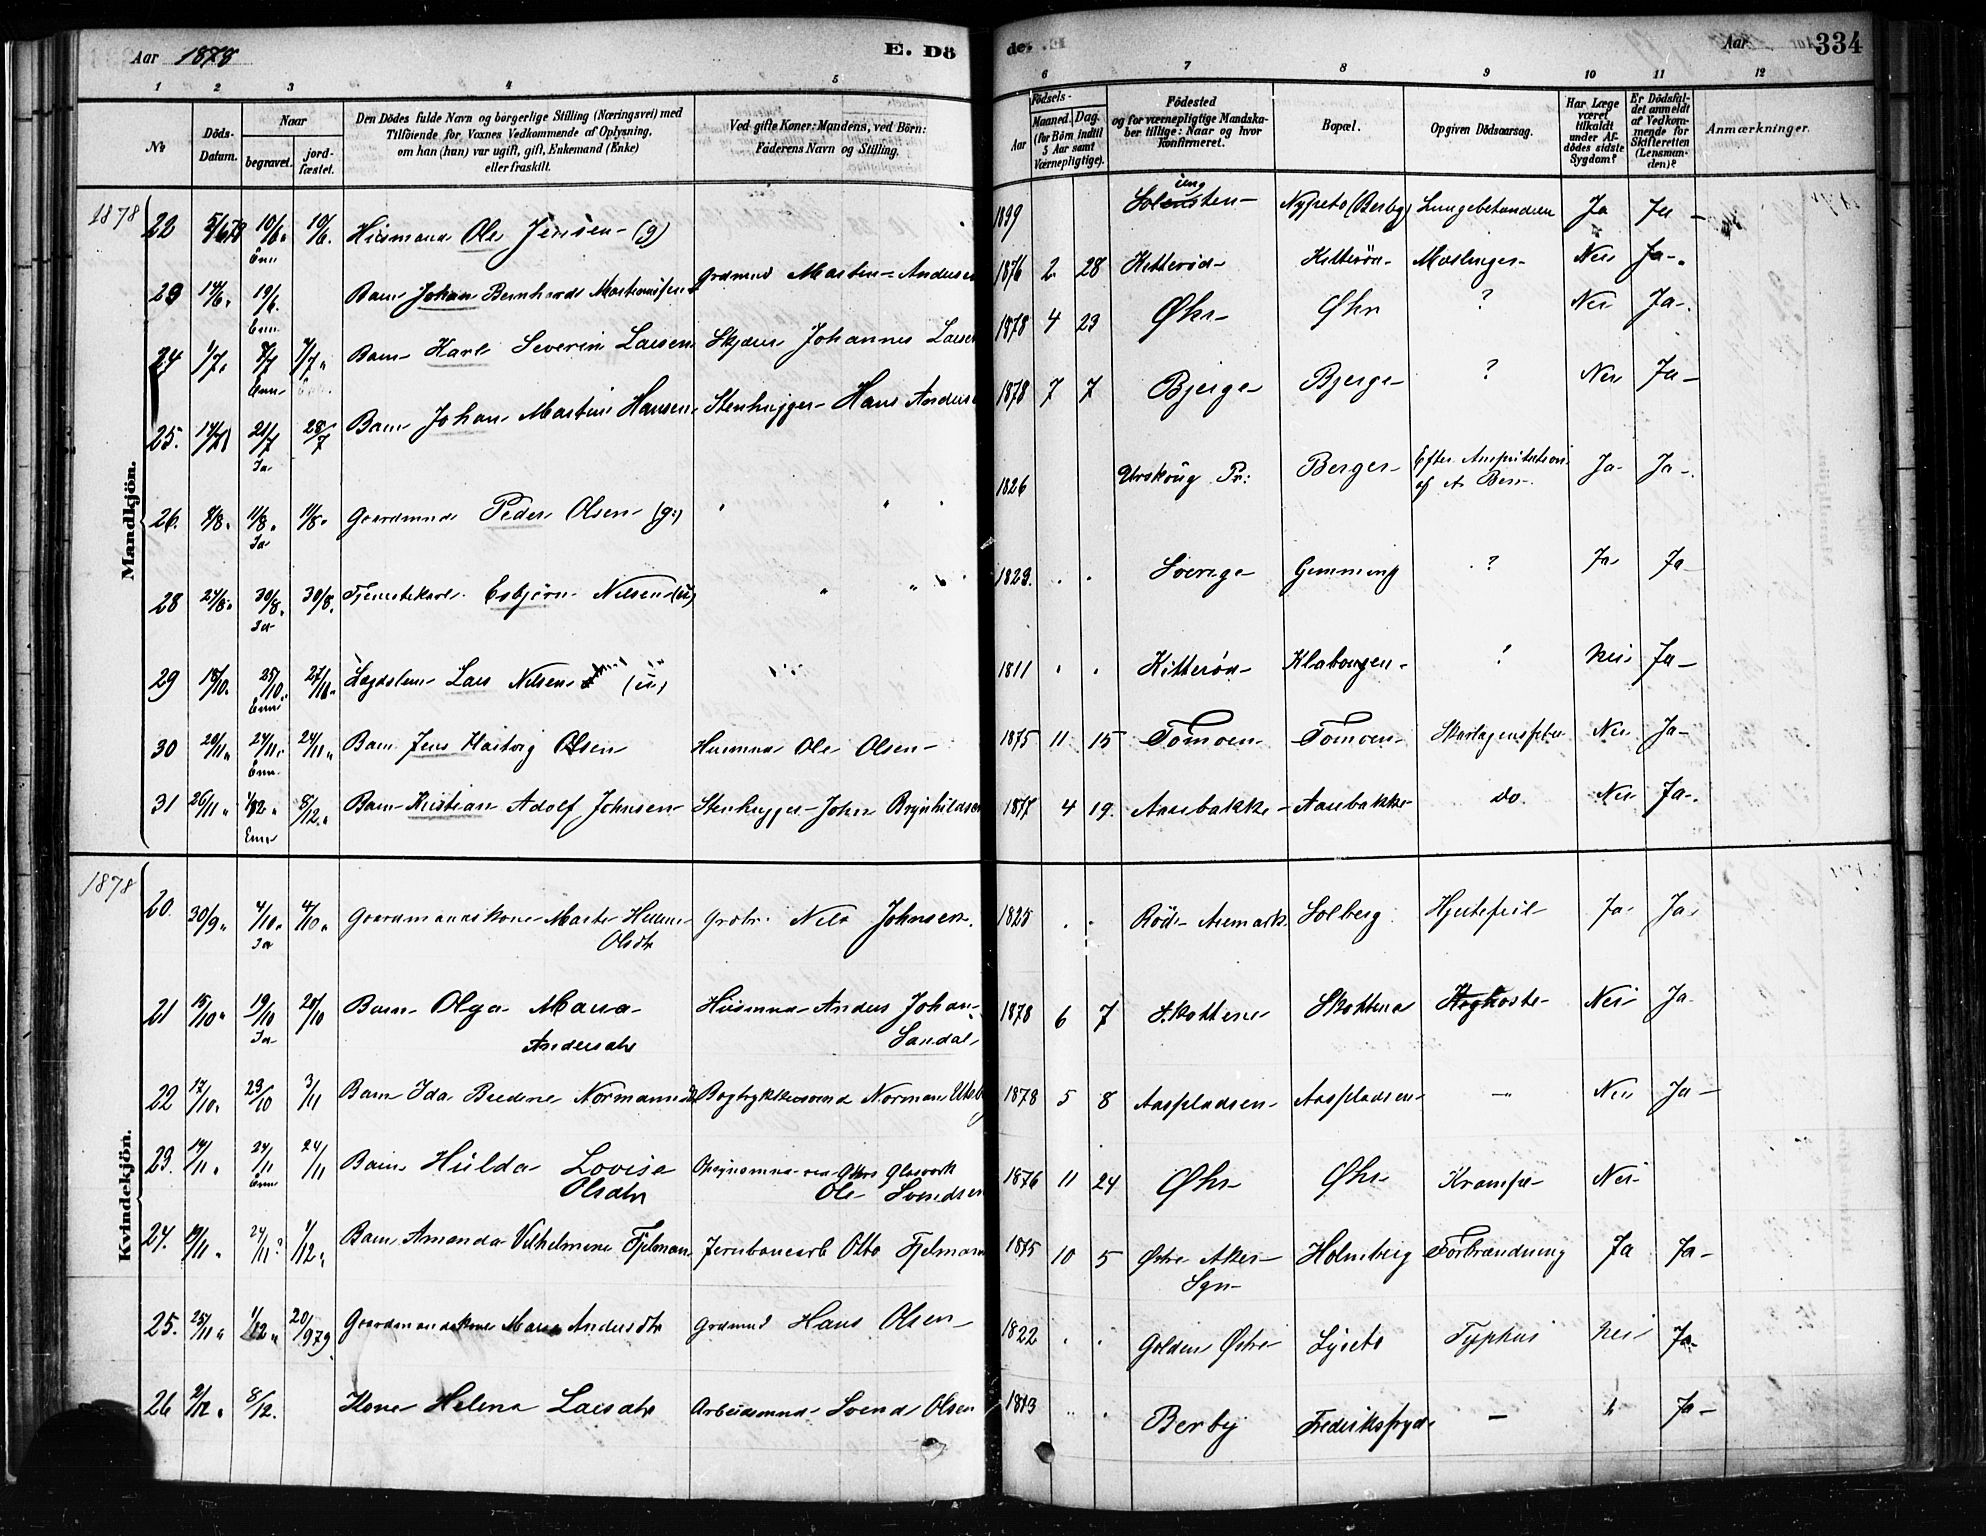 Aar 1878 E. Dö
de. Aar 334
1 2 3 4 5 6 7 8 9 10 11 12
No
Döds-Datum.
Naar
begravet.
jord-fæstet.
Den Dödes fulde Navn og borgerlige Stilling (Næringsvei) med
Tilföiende for Voxnes Vedkommende af Oplysning,
om han (hun) var ugift, gift, Enkemand (Enke)
eller fraskilt.
Ved gifte Koner: Mandens, ved Börn:
Faderens Navn og Stilling.
Födsels-
Aar
Maaned.
Dag.
(for Börn indtil
5 Aar samt
Værnepligtige).
Födested
og for værnepligtige Mandska-
ber tillige: Naar og hvor
konfirmeret.
Bopæl.
Opgiven Dödsaarsag.
Har Læge
været
tilkaldt
under Af-
dödes sidste
Sygdom?
Er Dödsfal-
det anmeldt
af Vedkom-
mende for
Skifteretten
(Lensman-
den)?
Anmærkninger.
Mandkjön.
1878 22 10/6 10/6. Husmand Ole Jensen (g) Nypeto (Berby) Lungebetændelse Ja Ja
23 14/6. 19/6. Barn Johan Bernhard Grdmnd Martin Andersen 1876 2 28 Kitterød Kitterød Meslinger Nei Ja
24 1/7. 7/7 7/7. Barn Karl Severin Larsen Johannes Larsen 1878 4 23 Øhr Øhr ? Nei Ja
25. 14/7 21/7 28/7 Barn Johan Martin Hansen Stenhugger Hans Anders 1878 7 7 Bjerge Bjerge ? Nei Ja
Ja
26. 8/8. 11/8. 11/8. Gaardmand Peder Olsen (g.) 1826 Urskoug Pr: Berger Efter Amputation
af et Ben Ja Ja
Ja
28 27/8. 30/8. 30/8. Tjenestekarl Esbjørn Nilsen (u) 1823. Sverige Gimming ? Ja Ja
Ja
29 18/10. 25/10. Lægdslem Lars Nilsen (u) 1811 Kitterød ? Nei Ja
30 20/11. 24/11. 24/11. Barn Jens Hartvig Olsen Husmnd Ole Olsen 1875 11 15 Tomoen Tomoen Skarlagensfeber Nei Ja
31 26/11. 8/12. Barn Kristian Adolf Johnsen Stenhugger John Brynhildsen 1877 4 19. Aarebakke Aarebakke Do. Nei Ja
Kvindekjön.
1878 20. 30/9. 4/10. 4/10. Gaardmandskone Marte Helene
Olsdtr Nils Johnsen. 1825 Röd Aremark Solberg Hjertefeil Ja Ja
Ja
21 15/10. 19/10 20/10 Barn Olga Maria
Andersdtr Husmnd Anders Johan
Sandal 1878 6 7 Skottene Skottene Kighoste Nei Ja
Ja
22 17/10. 23/10 3/11 Barn Ida Bredine 1878 5 8 Aaspladsen Aaspladsen — Nei Ja
23. 14/11. 24/11 24/11 Barn Hulda Lovise
Olsdtr Opsynsmnd ved Øhrs Glasværk
Ole Svendsen 1876 11 24 Øhr Øhr Krampe Nei
24. 24/11? 1/12. Barn Amanda Vilhelmine Fjelman Jernbanearb Otto Fjelman 1875 10 5 Østre Aker
Sgn Holmberg Forbrænding Ja Ja
25. 25/11. 1/12. 20/9 79. Gaardmandskone Maria Andersdtr Grdmnd Hans Olsen 1822 Golden Østre Lyseto Typhus Nei Ja
26 2/12. 8/12. Kone Helena Larsdtr Arbeidsmnd Svend Olsen 1813 Berby Frederiksfryd — " Ja